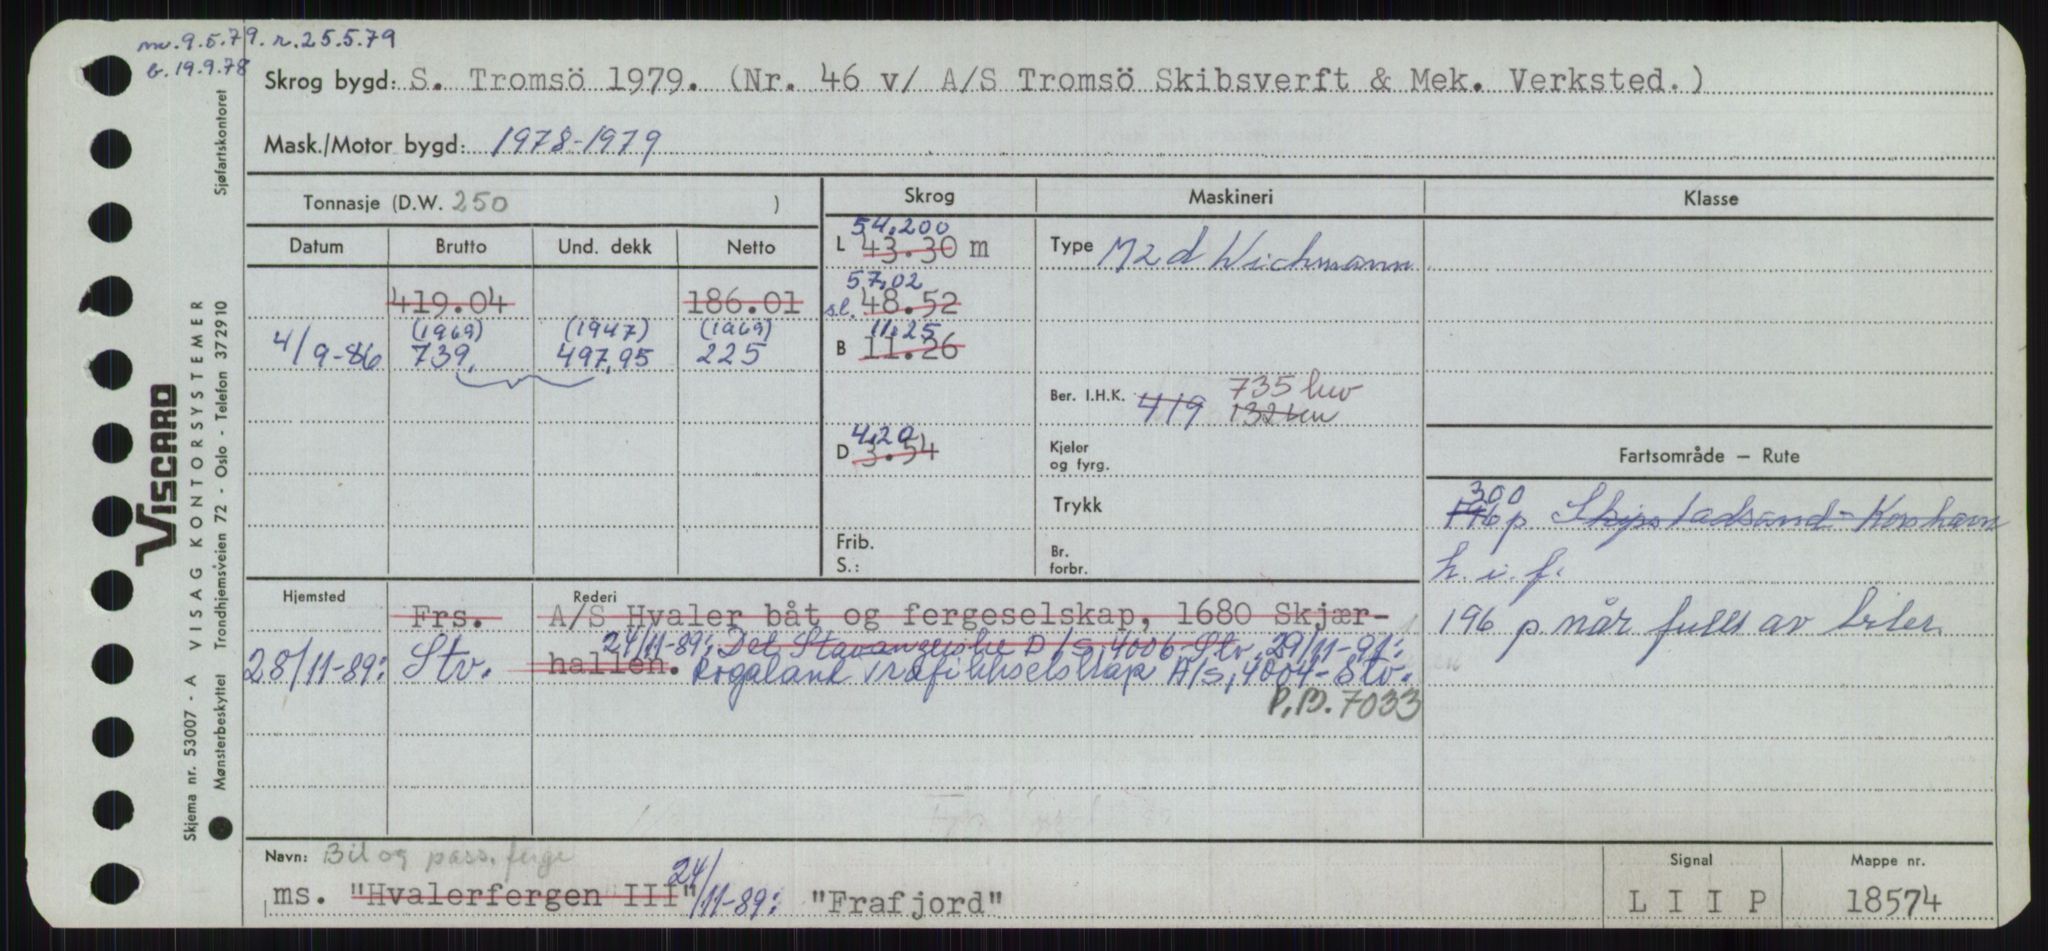 mv. 9.5.79. r. 25.5.79
b. 19.9.78
Skrog bygd: S. Tromsö 1979. (Nr. 46 v/ A/S Tromsö Skibsverft & Mek. Verksted.)
Mask./Motor bygd: 1978-1979
Tonnasje (D.W. 250 )
Skrog Maskineri Klasse
Datum Brutto Und. dekk Netto
54.200
L 43.30 m
Type M2d Wichmann
57,02
419.04 186.01
sl. 48.52
(1969) (1947) (1969)
4/9-86 739. 497,95 225
11.25
B 11.26
Ber. I.H.K. 419 735 kw
132 kw
4,20
D 3.54
Kjeler
og fyrg.
Trykk
Frib.
S.:
Br.
forbr.
Fartsområde – Rute
300
196 p Skipstadsand - Korshavn
h. i. f.
196 p når full av biler
Hjemsted Rederi
Frs. A/S Hvaler båt og fergeselskap, 1680 Skjær-
24/11-89: Det Stavangerske D/S, 4006-Stv. 29/11-91:
28/11-89: Stv. hallen. Rogaland Trafikkselskap A/S, 4004-Stv.
P.B. 7033
Navn: Bil og pass. ferge
Signal Mappe nr.
ms. "Hvalerfergen III" 24/11-89: "Frafjord"
L I I P 18574
VISCARD
Skjema nr. 53007 - A VISAG KONTORSYSTEMER
Mønsterbeskyttet Trondhjemsveien 72 - Oslo - Telefon 372910 Sjøfartskontoret